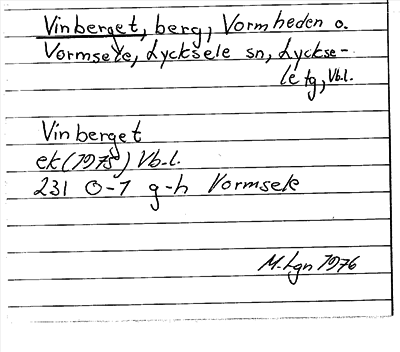 Vinberget, berg, Vormheden o.
Vormsele, Lycksele sn, Lyckse-
le tg, Vb.l.
Vinberget
ek (1975) Vb.l.
231 0-1 g-h Vormsele
M. Lgn 1976